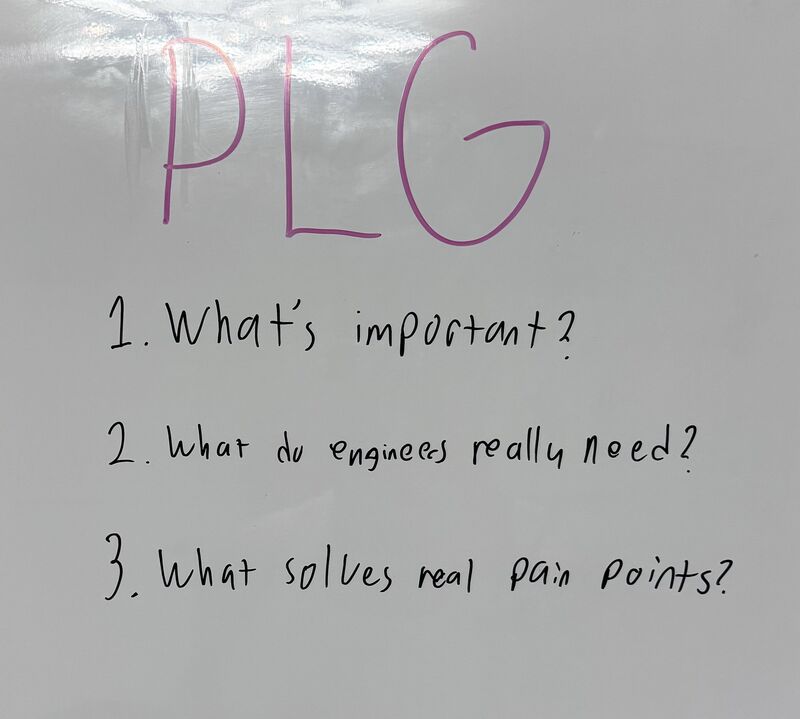 PLG
1. What's important?
2. What do engineers really need?
3. What solves real pain points?